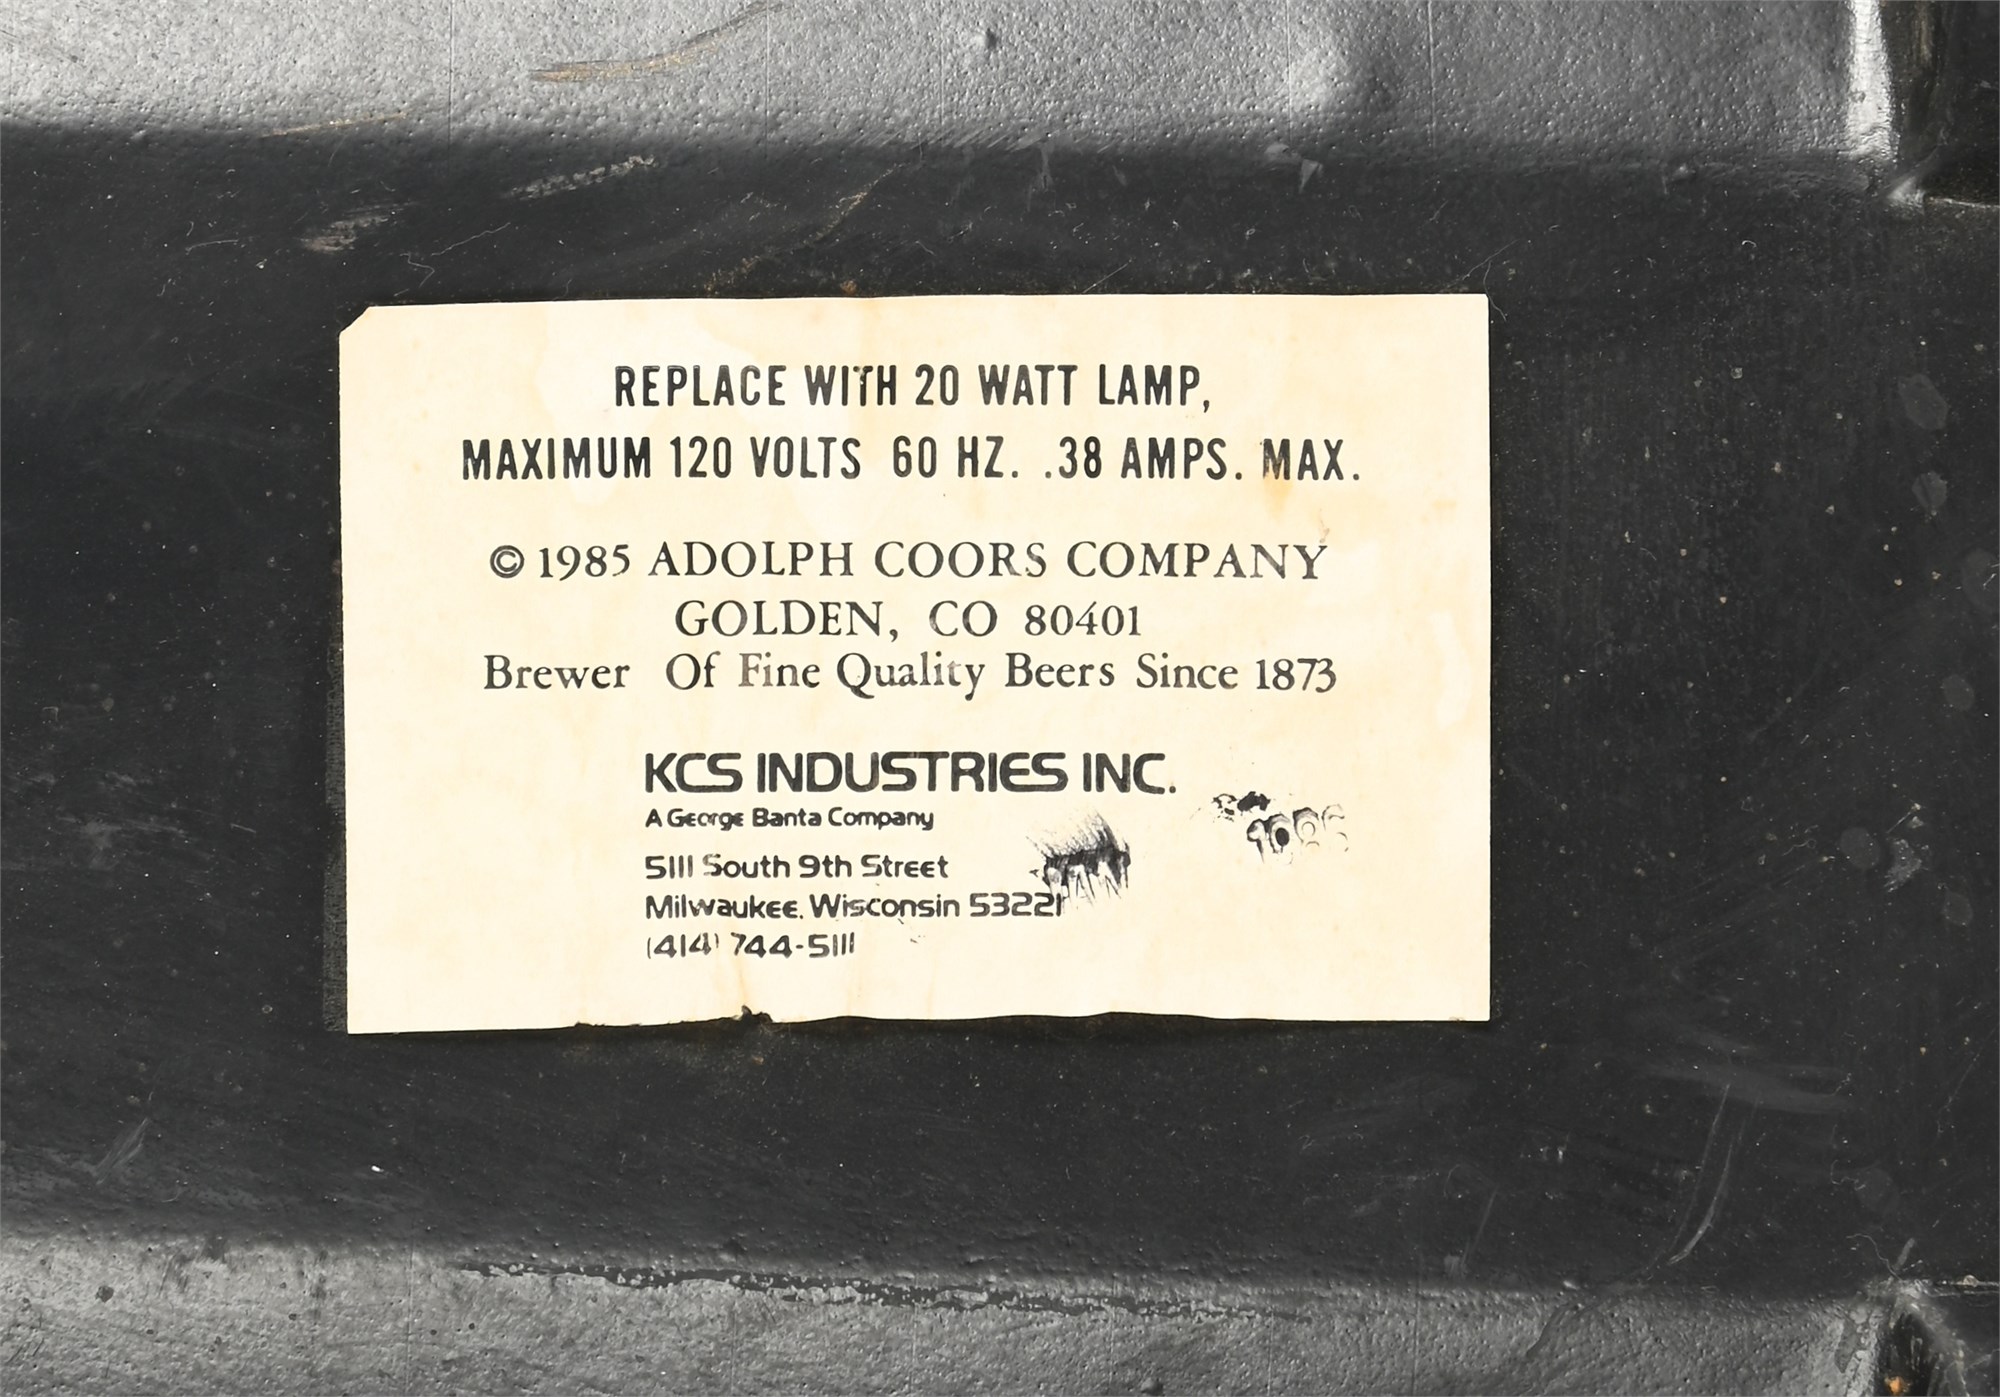 REPLACE WITH 20 WATT LAMP,
MAXIMUM 120 VOLTS 60 HZ. .38 AMPS. MAX.
© 1985 ADOLPH COORS COMPANY
GOLDEN, CO 80401
Brewer Of Fine Quality Beers Since 1873
KCS INDUSTRIES INC.
A George Banta Company
5111 South 9th Street
Milwaukee, Wisconsin 53221
(414) 744-5111